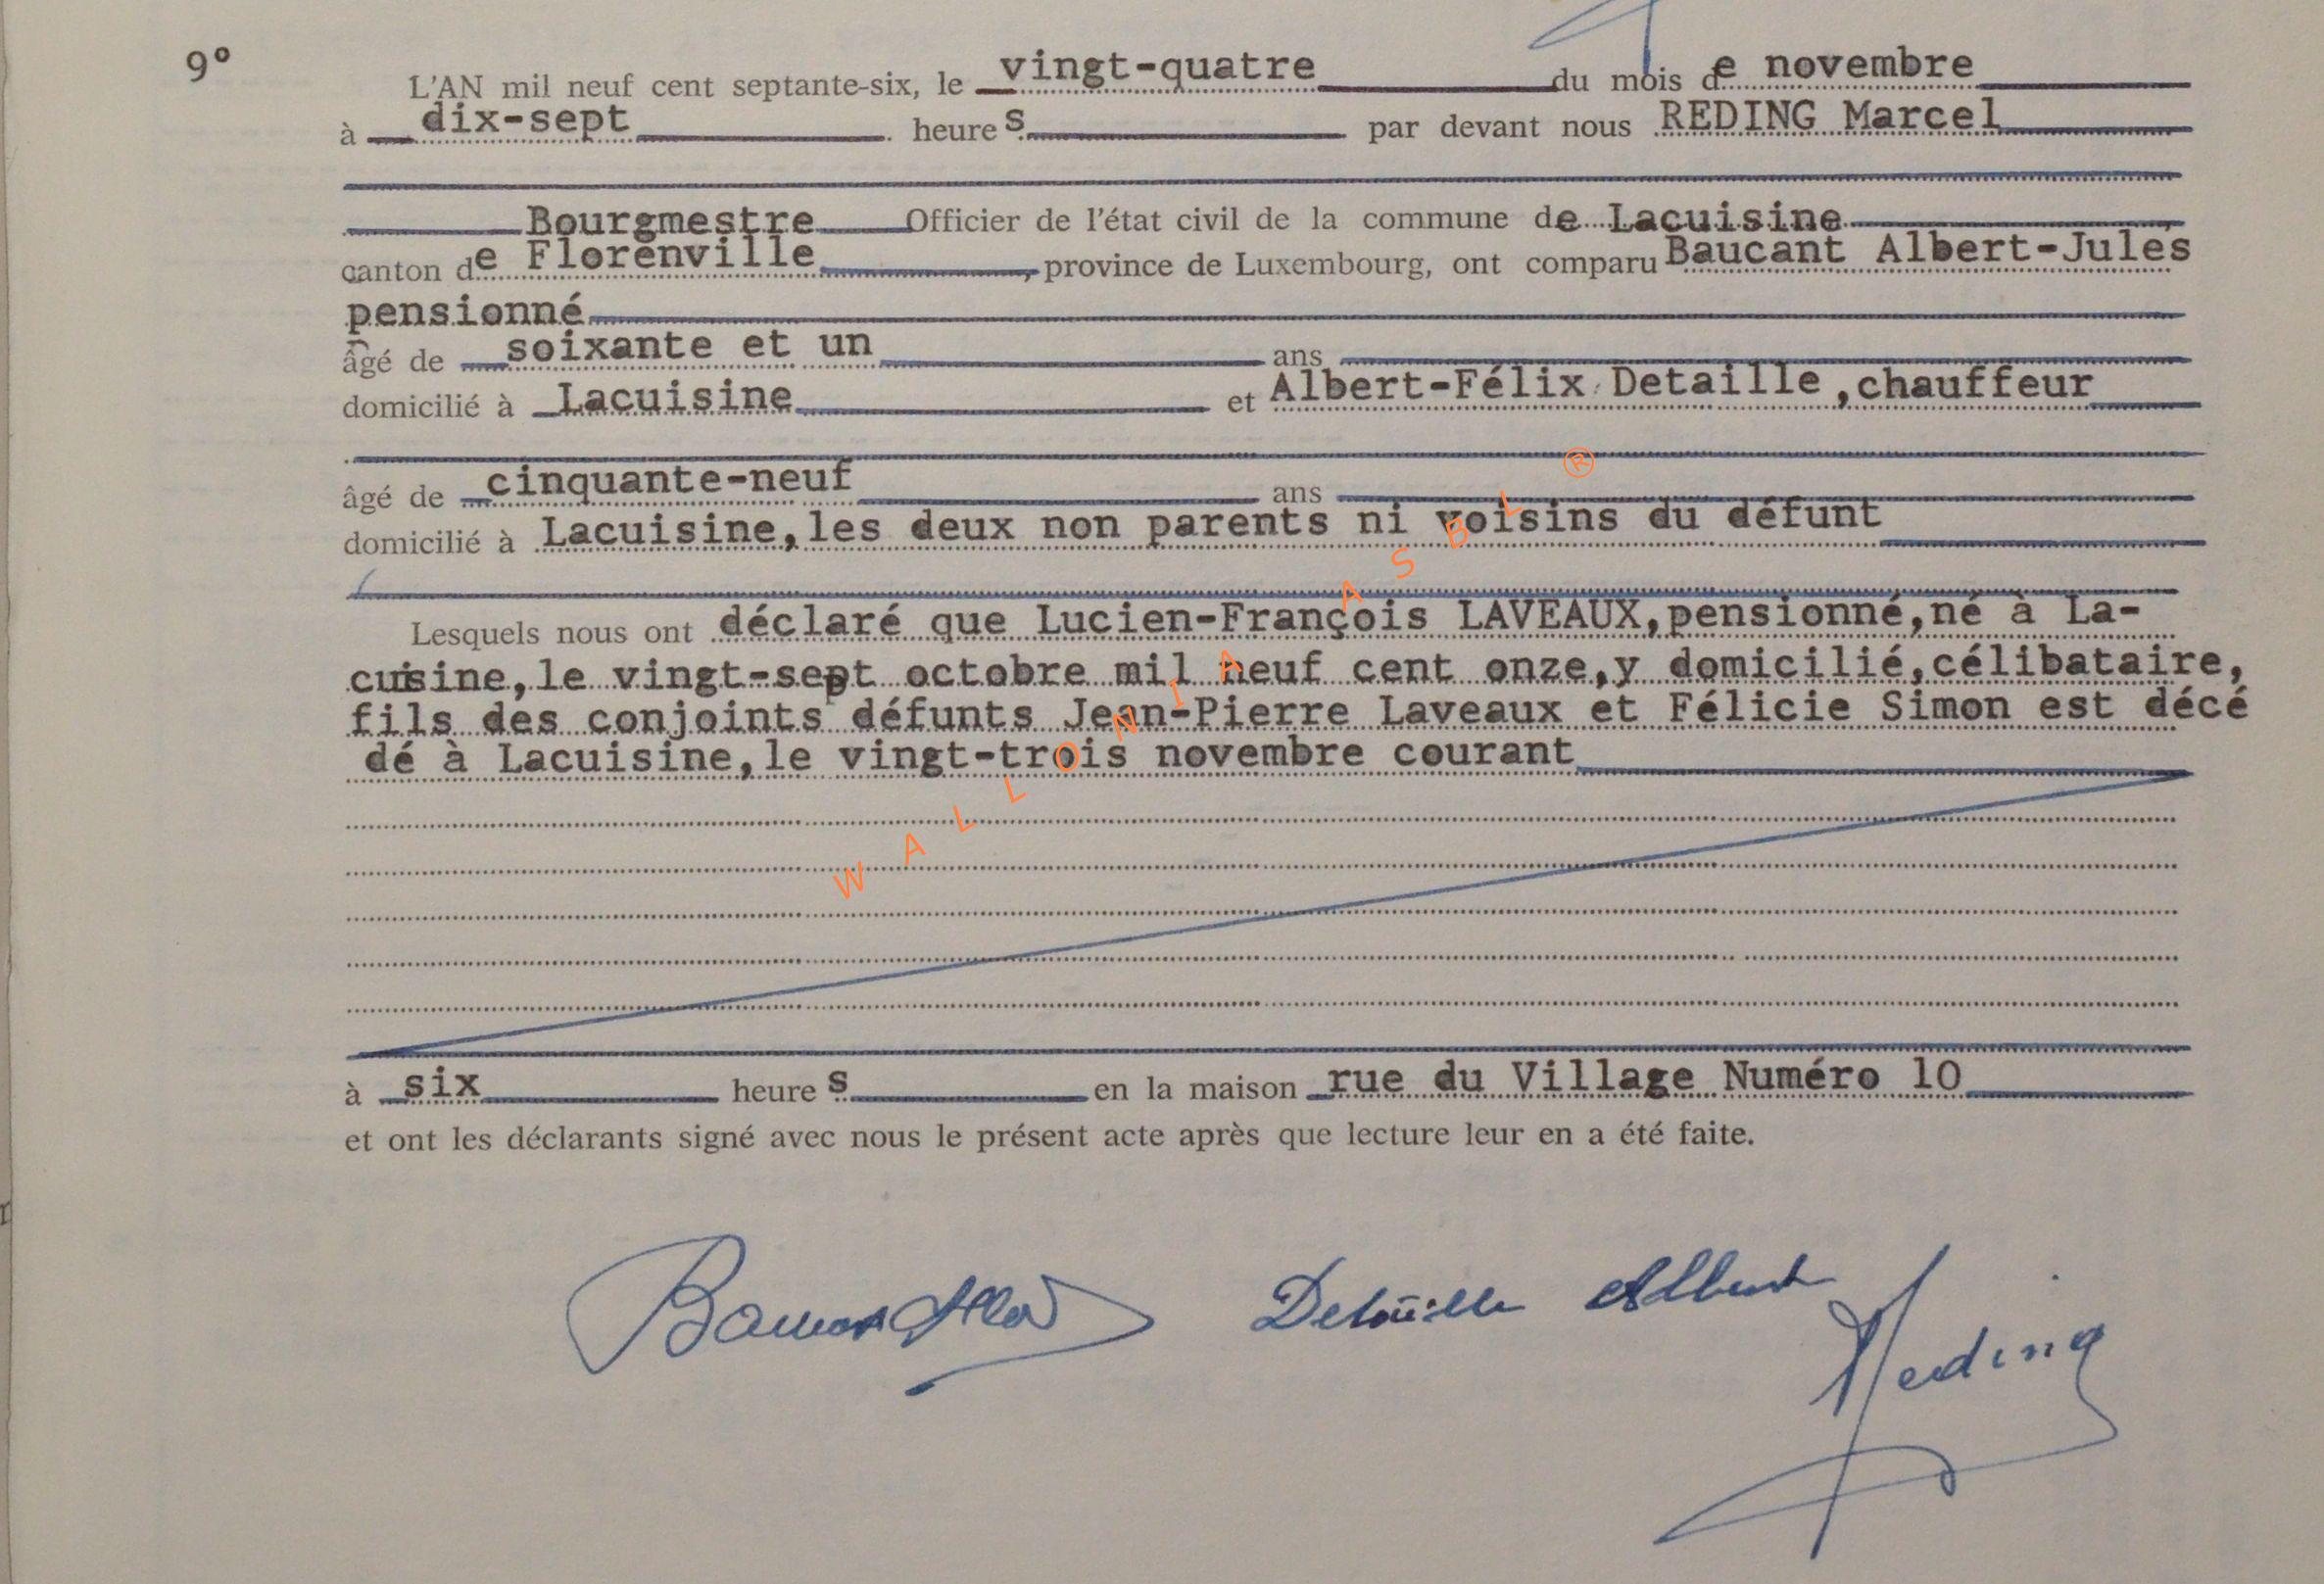 9°
L'AN mil neuf cent septante-six, le vingt-quatre du mois de novembre
à dix-sept heures par devant nous REDING Marcel
Bourgmestre Officier de l'état civil de la commune de Lacuisine
canton de Florenville, province de Luxembourg, ont comparu Baucant Albert-Jules
pensionné
âgé de soixante et un ans
domicilié à Lacuisine et Albert-Félix Detaille,chauffeur
âgé de cinquante-neuf ans
domicilié à Lacuisine,les deux non parents ni voisins du défunt
Lesquels nous ont déclaré que Lucien-François LAVEAUX,pensionné,né à La-
cuisine,le vingt-sept octobre mil neuf cent onze,y domicilié,célibataire,
fils des conjoints défunts Jean-Pierre Laveaux et Félicie Simon est décé
dé à Lacuisine,le vingt-trois novembre courant
WALLONIA ASBL ®
à six heures en la maison rue du Village Numéro 10
et ont les déclarants signé avec nous le présent acte après que lecture leur en a été faite.
Detaille Albert
Reding